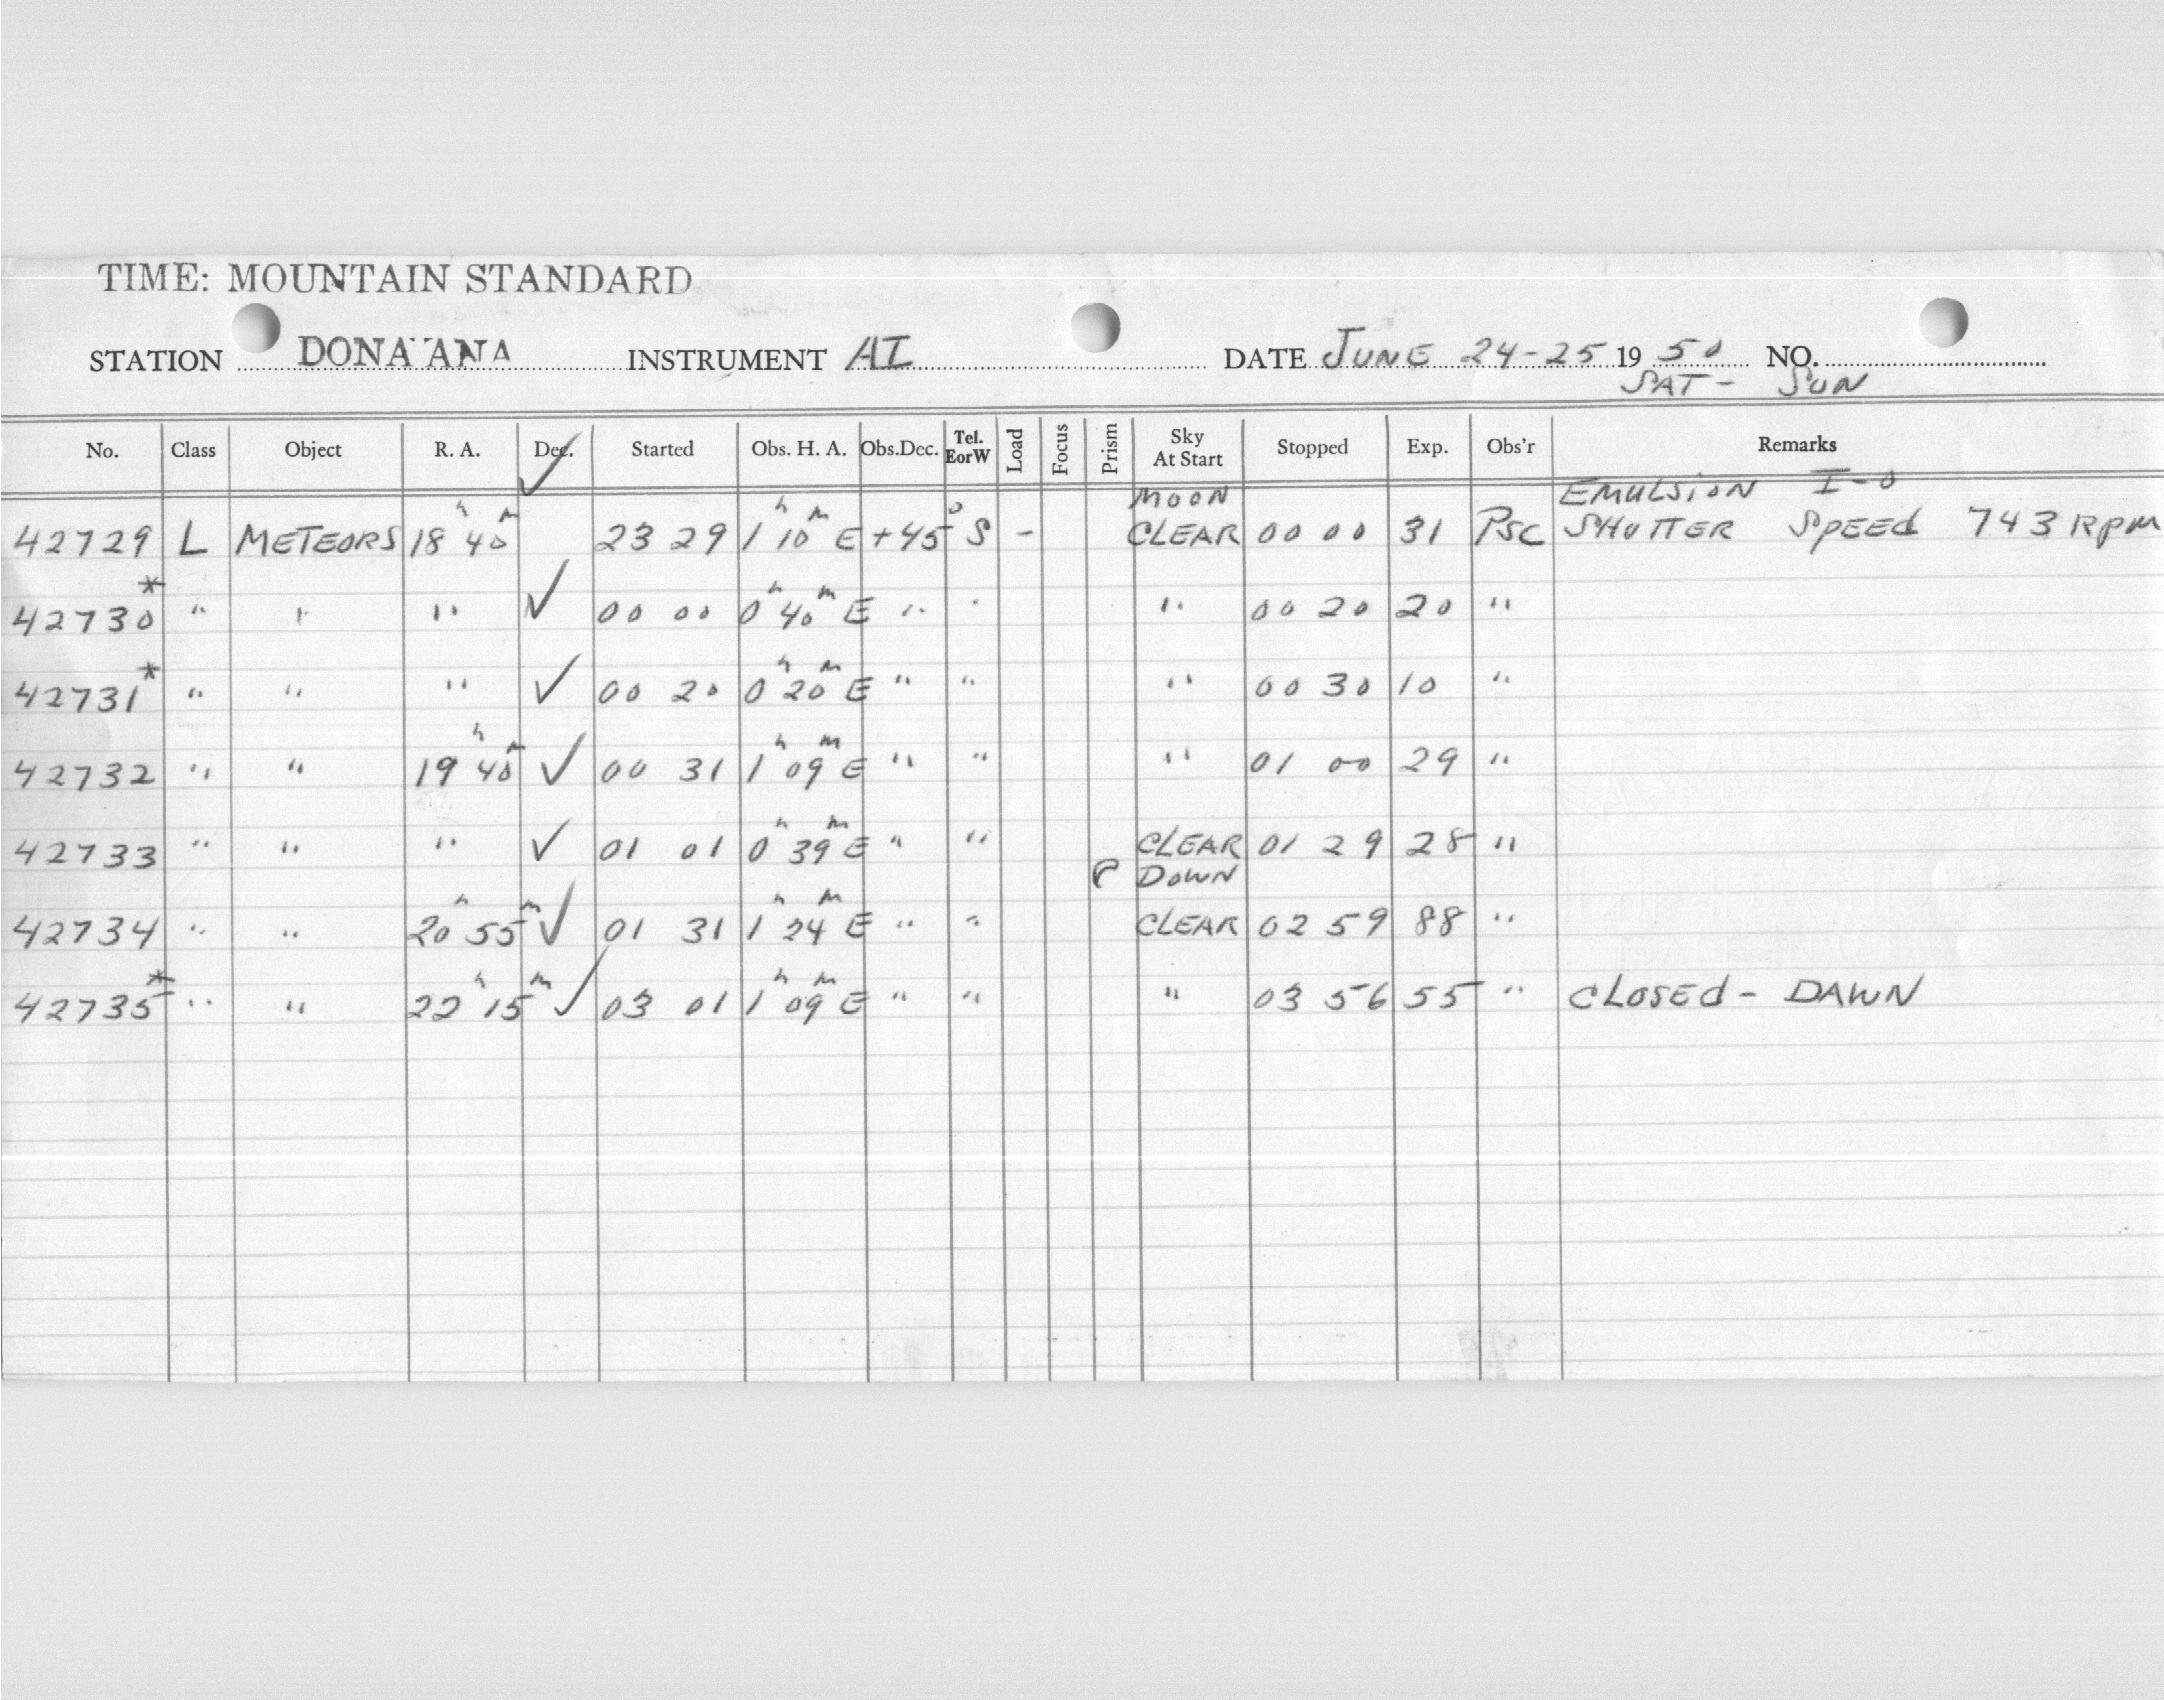 TIME: MOUNTAIN STANDARD
STATION DONA ANA INSTRUMENT AI DATE JUNE 24-25 19 50 NO.
SAT- SUN
No. Class Object R. A. Dec. Started Obs. H. A. Obs.Dec. Tel. EorW Load Focus Prism Sky At Start Stopped Exp. Obs'r Remarks
MOON EMULSION I-O
42729 L METEORS 18h 40m ✓ 23 29 1h 10m E +45° S - CLEAR 00 00 31 PSC SHUTTER SPEED 743 RPM
42730* " " " ✓ 00 00 0h 40m E " " " 00 20 20 "
42731* " " " ✓ 00 20 0h 20m E " " " 00 30 10 "
42732 " " 19h 40m ✓ 00 31 1h 09m E " " " 01 00 29 "
42733 " " " ✓ 01 01 0h 39m E " " CLEAR 01 29 28 "
DOWN
42734 " " 20h 55m ✓ 01 31 1h 24m E " " CLEAR 02 59 88 "
42735* " " 22h 15m ✓ 03 01 1h 09m E " " " 03 56 55 " CLOSED - DAWN